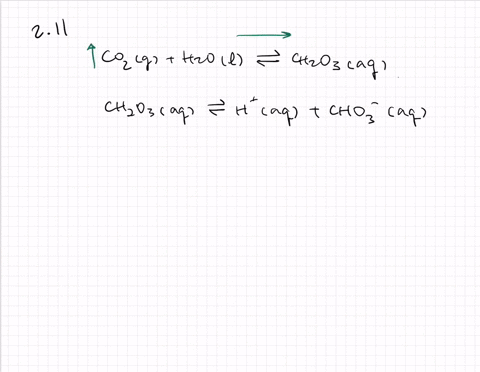 2.11
↑CO₂(g) + H₂O(l) ⇌ CH₂O₃(aq)
CH₂O₃(aq) ⇌ H⁺(aq) + CHO₃⁻(aq)